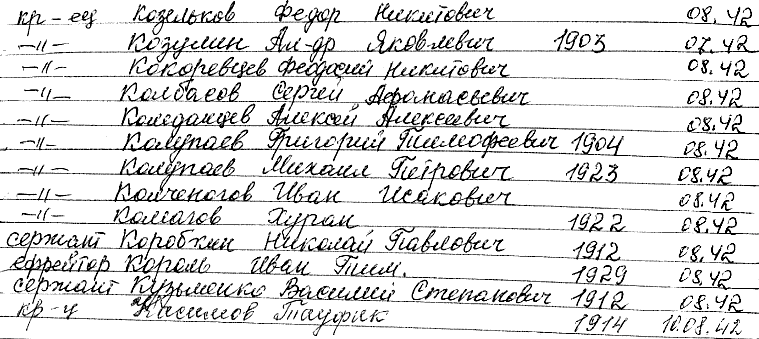 кр-ец Козельков Федор Никитович 08.42
-"- Козулин Ал-др Яковлевич 1903 07.42
-"- Кокоревцев Феодосий Никитович 08.42
-"- Колбасов Сергей Афанасьевич 08.42
-"- Алексей Алексеевич 08.42
-"- Колупаев Григорий Тимофеевич 1904 08.42
-"- Колупаев Михаил Петрович 1923 08.42
-"- Колченогов Иван Исакович 08.42
-"- Хуран 1922 08.42
сержант Коробкин Николай Павлович 1912 08.42
ефрейтор Король Иван Тим. 1929 08.42
сержант Кузьменко Василий Степанович 1912 08.42
кр-ц Касимов Тауфик 1914 10.08.42